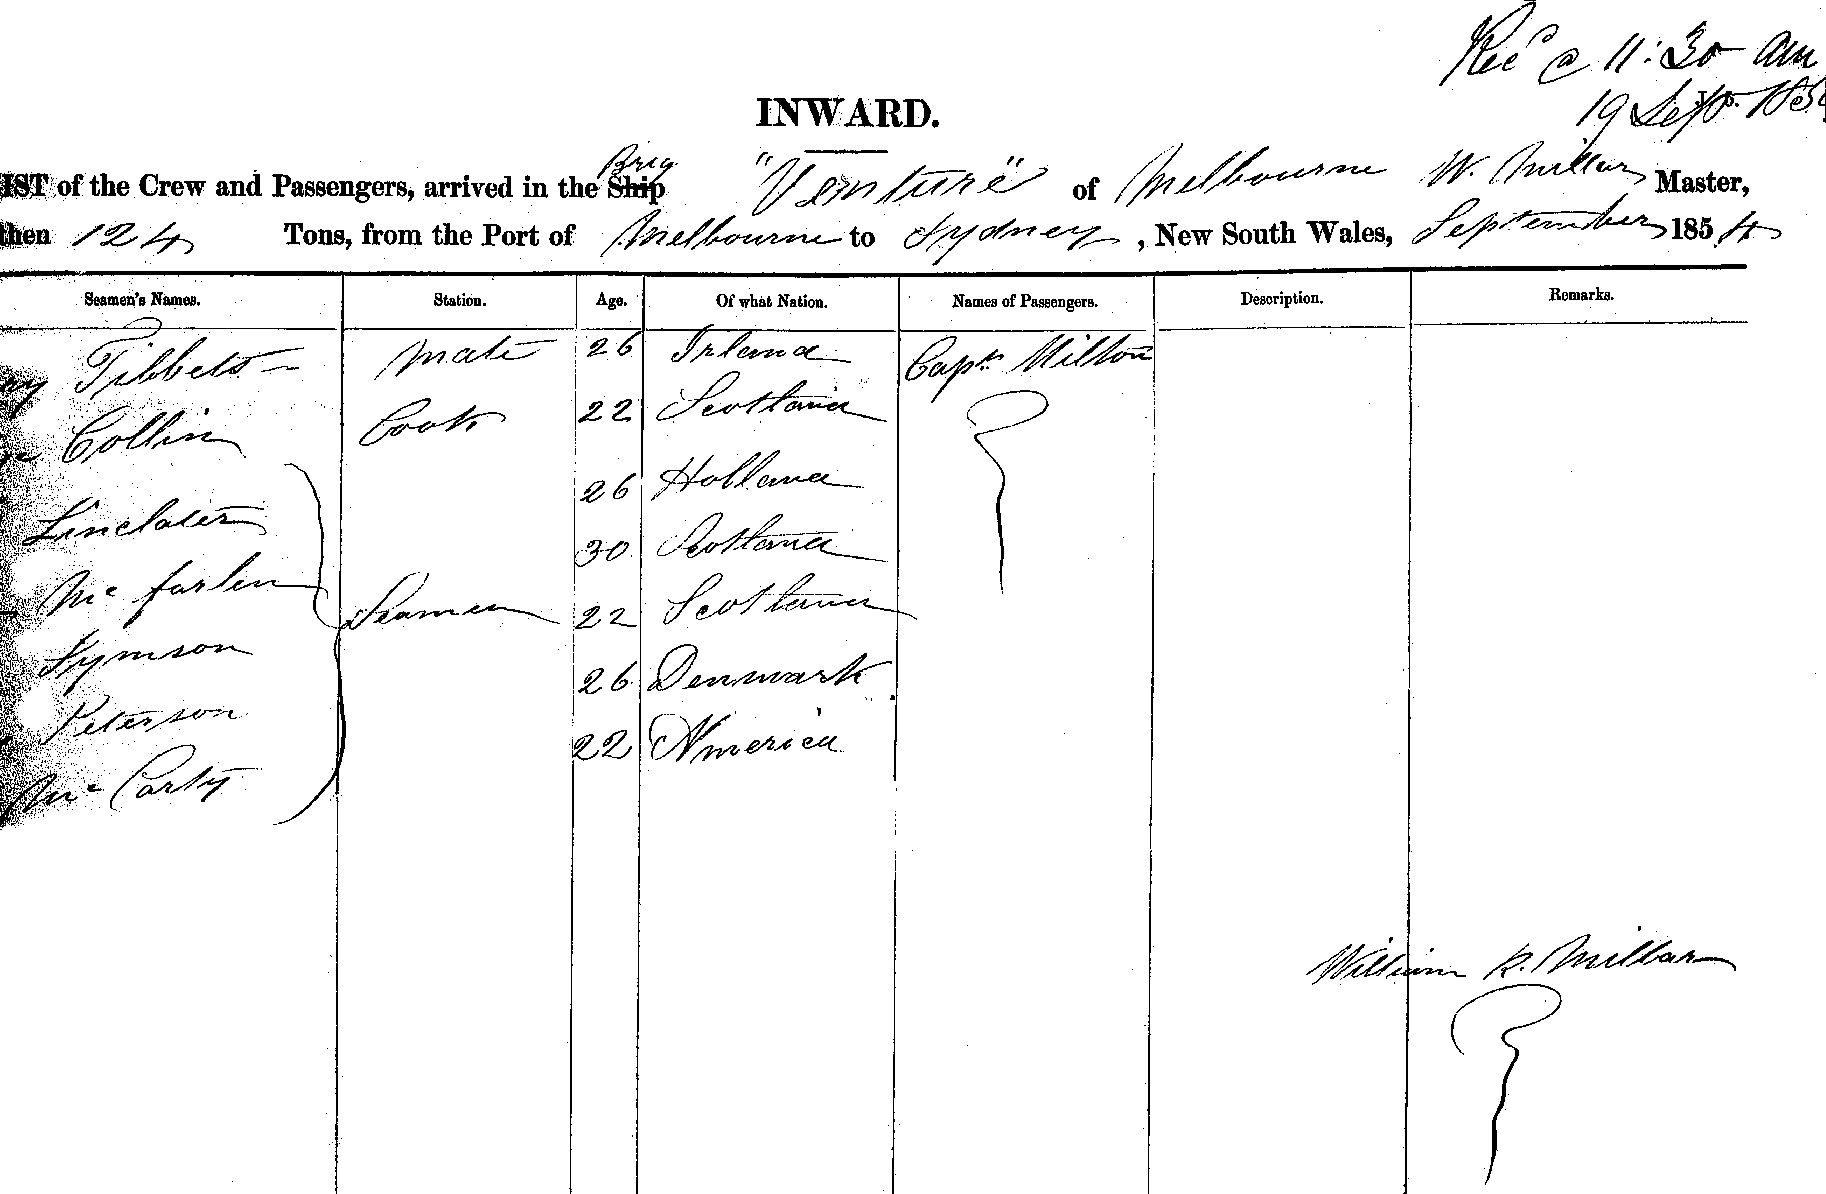 Recd @ 11:30 am
19 Sept. 1854
INWARD.
LIST of the Crew and Passengers, arrived in the Ship Brig "Venture" of Melbourne W. Millar Master,
then 124 Tons, from the Port of Melbourne to Sydney, New South Wales, September 1854
Seamen's Names. Station. Age. Of what Nation. Names of Passengers. Description. Remarks.
Tibbets Mate 26 Irland Capt. Milton
Collin Cook 22 Scotland
Linclater 26 Holland
Mc farlen 30 Scotland
Symson Seamen 22 Scotland
Peterson 26 Denmark
Mc Carty 22 America
William R. Millar